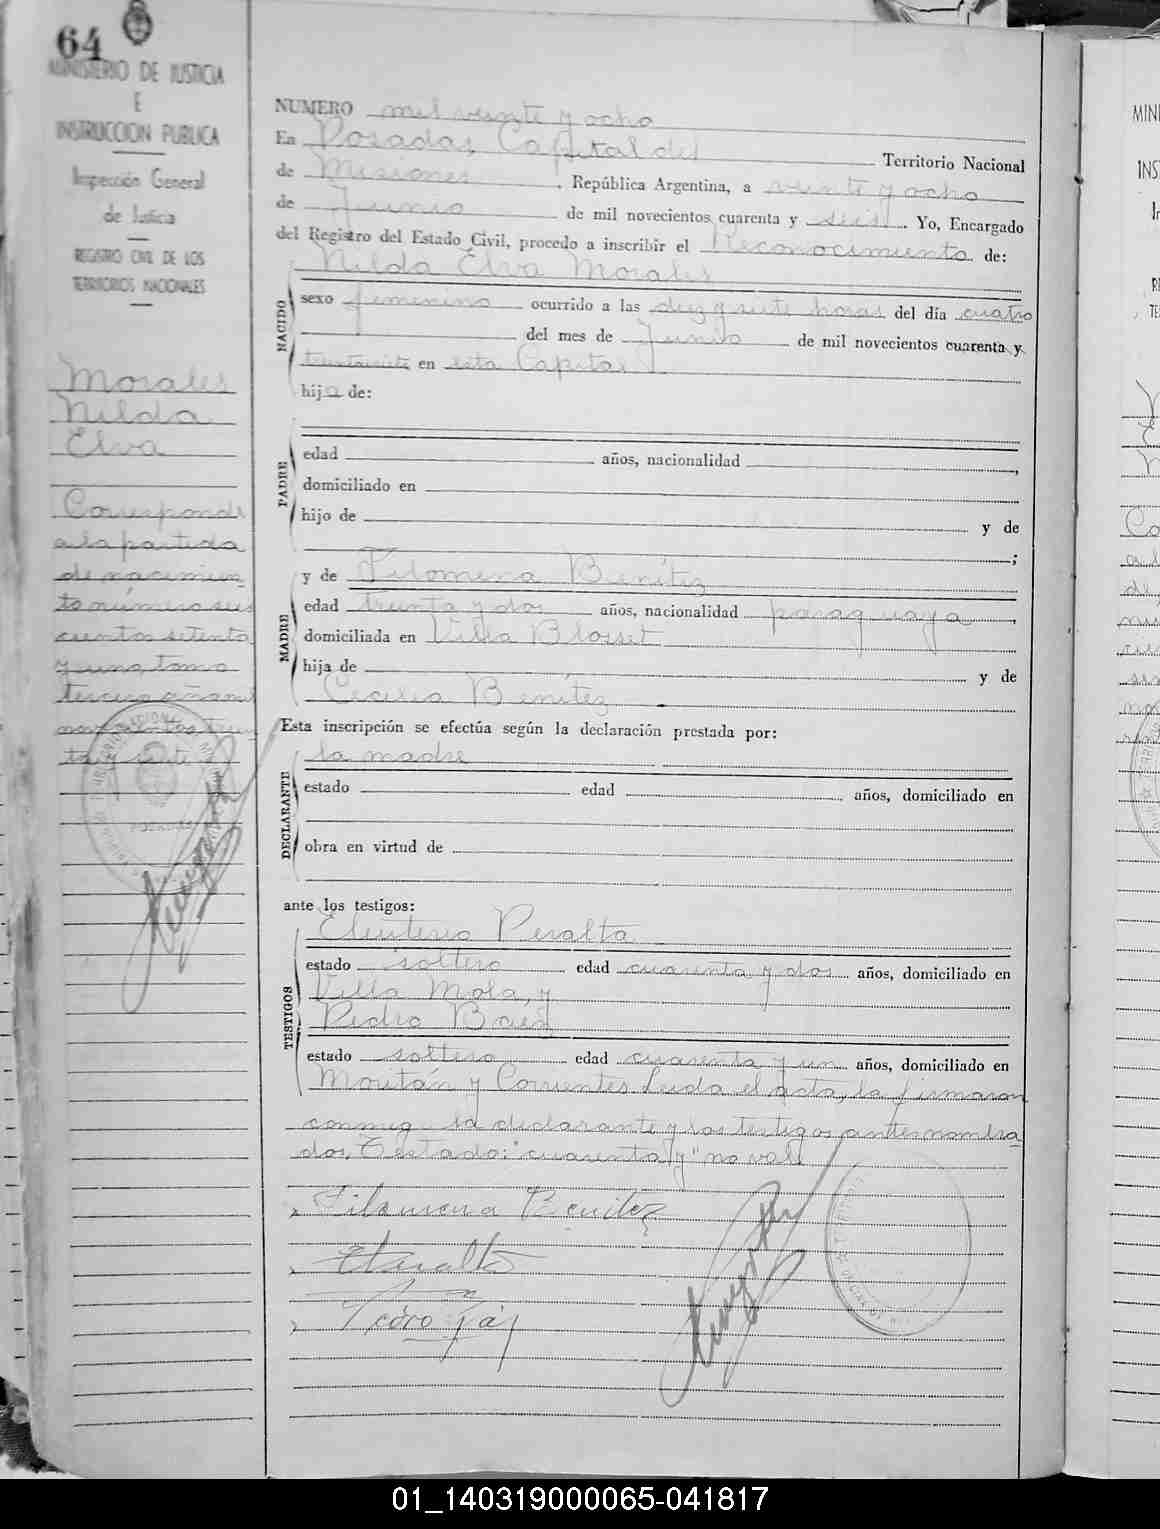 64
MINISTERIO DE JUSTICIA
E
INSTRUCCION PUBLICA
Inspección General
de Justicia
REGISTRO CIVIL DE LOS
TERRITORIOS NACIONALES
Morales
Nilda
Elva
Corresponde
a la partida
de nacimien
to número seis
cientos setenta
y uno, tomo
tercero año mil
novecientos trein
ta y siete
NUMERO mil veinte y ocho
En Posadas, Capital del Territorio Nacional
de Misiones, República Argentina, a veinte y ocho
de Junio de mil novecientos cuarenta y seis. Yo, Encargado
del Registro del Estado Civil, procedo a inscribir el Reconocimiento de:
Nilda Elva Morales
NACIDO
sexo femenino ocurrido a las diez y siete horas del día cuatro
del mes de Junio de mil novecientos cuarenta y
treintaisiete en esta Capital
hija de:
PADRE
edad años, nacionalidad ,
domiciliado en
hijo de y de
;
y de Filomena Benítez
MADRE
edad treinta y dos años, nacionalidad paraguaya,
domiciliada en Villa Blosset
hija de y de
Cecilia Benítez
Esta inscripción se efectúa según la declaración prestada por:
la madre
DECLARANTE
estado edad años, domiciliado en
obra en virtud de
ante los testigos:
Eleuterio Peralta
TESTIGOS
estado soltero edad cuarenta y dos años, domiciliado en
Villa Mola, y
Pedro Baez
estado soltero edad cuarenta y un años, domiciliado en
Moután y Corrientes. Leída el acta, la firmaron
conmigo la declarante y los testigos antes nombra
dos. Testado: "cuarenta y" no vale
Filomena Benitez
EPeralta
Pedro
01_140319000065-041817